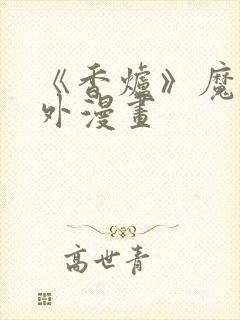 《香爐》魔
外漫畫
高世青